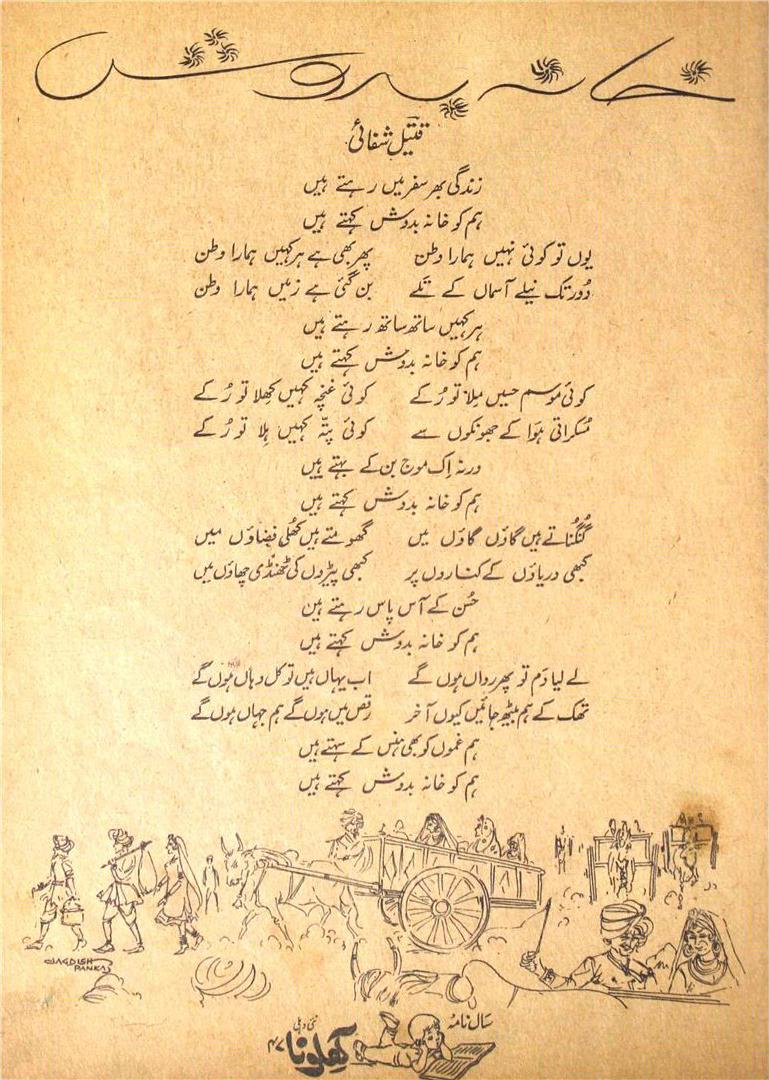 خانہ بدوش
قتیل شفائی
زندگی بھر سفر میں رہتے ہیں
ہم کو خانہ بدوش کہتے ہیں
یوں تو کوئی نہیں ہمارا وطن پھر بھی ہے ہر کہیں ہمارا وطن
دُور تک نیلے آسماں کے تَلے بن گئی ہے زمیں ہمارا وطن
ہر کہیں ساتھ ساتھ رہتے ہیں
ہم کو خانہ بدوش کہتے ہیں
کوئی موسم حسیں مِلا تو رُکے کوئی غنچہ کہیں کِھلا تو رُکے
مُسکراتی ہَوا کے جھونکوں سے کوئی پتّہ کہیں ہِلا تو رُکے
ورنہ اِک موج بن کے بہتے ہیں
ہم کو خانہ بدوش کہتے ہیں
گُنگُناتے ہیں گاؤں گاؤں میں گھومتے ہیں کُھلی فضاؤں میں
کبھی دریاؤں کے کناروں پر کبھی پیڑوں کی ٹھنڈی چھاؤں میں
حُسن کے آس پاس رہتے ہین
ہم کو خانہ بدوش کہتے ہیں
لے لیا دَم تو پھر رواں ہوں گے اب یہاں ہیں تو کل وہاں ہوں گے
تھک کے ہم بیٹھ جائیں کیوں آخر رقص میں ہوں گے ہم جہاں ہوں گے
ہم غموں کو بھی ہنس کے سہتے ہیں
ہم کو خانہ بدوش کہتے ہیں
JAGDISH
PANKAJ
سَال نامہ
کھلونا نئی دہلی
۴۷